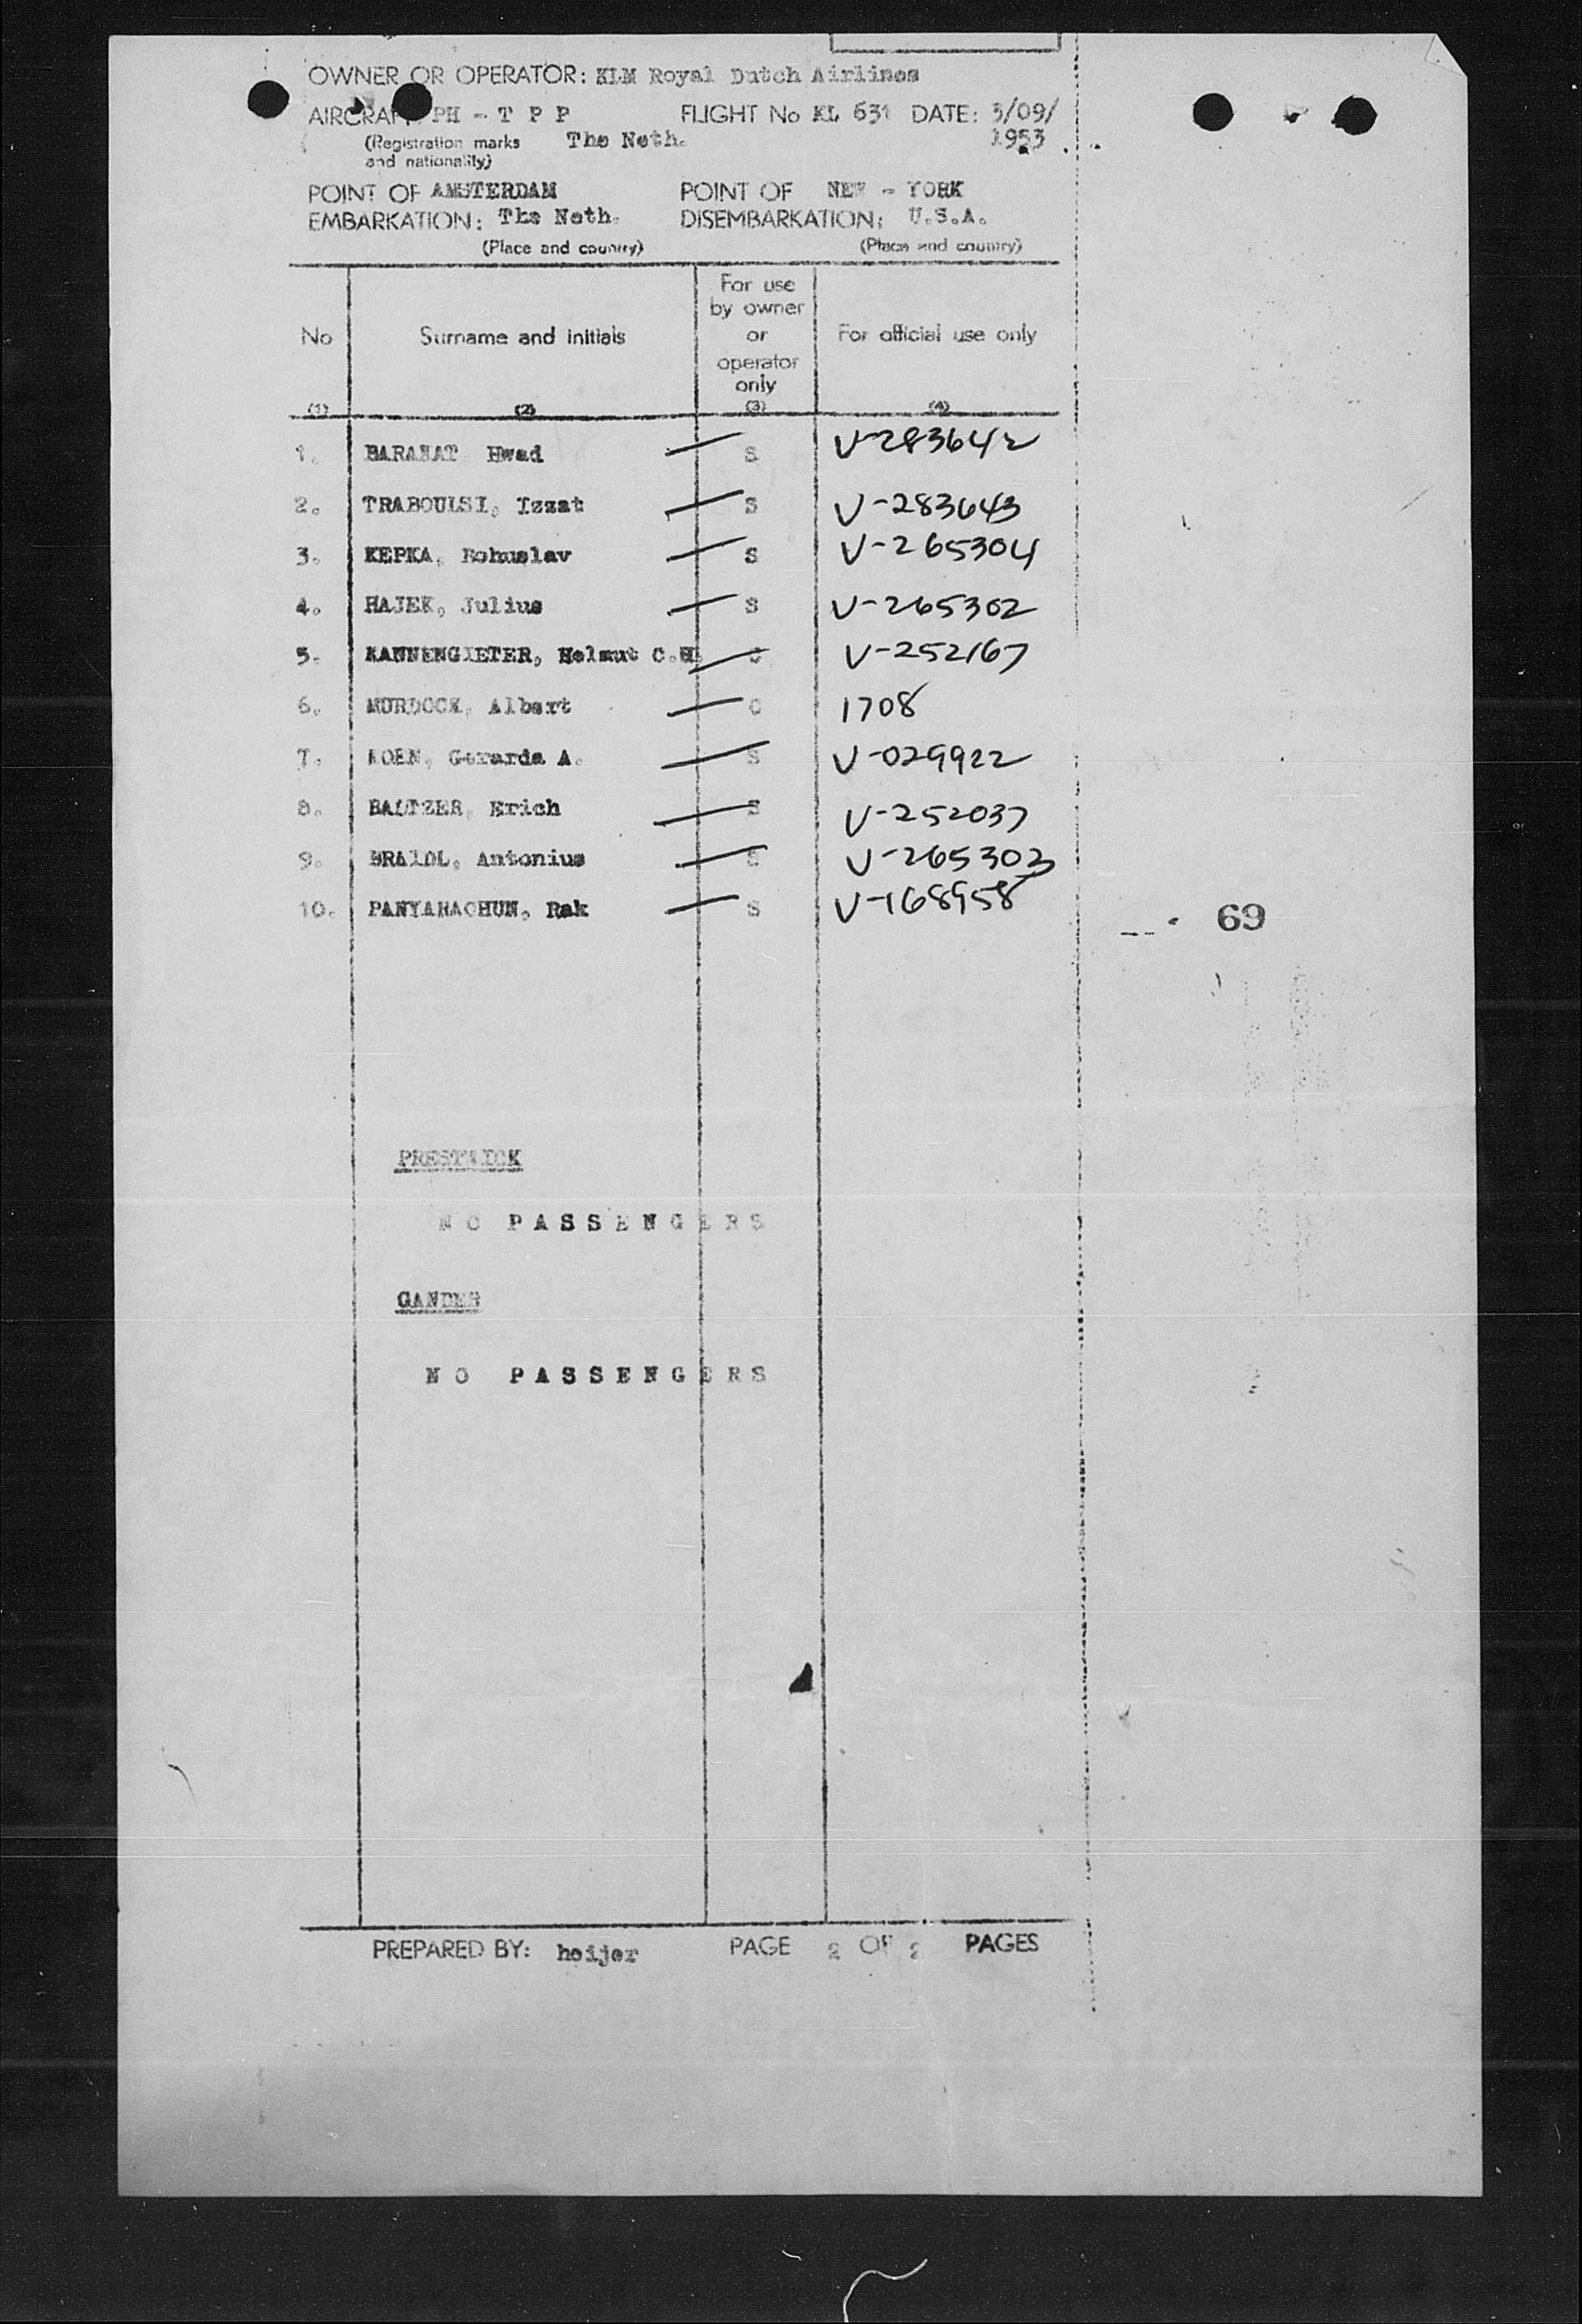 OWNER OR OPERATOR: KLM Royal Dutch Airlines
AIRCRAFT PH - T P P FLIGHT No KL 631 DATE: 3/09/
(Registration marks The Neth. 1953
and nationality)
POINT OF AMSTERDAM POINT OF NEW - YORK
EMBARKATION: The Neth. DISEMBARKATION: U.S.A.
(Place and country) (Place and country)
No Surname and initials For use by owner or operator only For official use only
(1) (2) (3) (4)
1. BARAKAT Hwad S V-283642
2. TRABOULSI, Izzat S V-283643
3. KEPKA, Bohuslav S V-265304
4. HAJEK, Julius S V-265302
5. KANNENGIETER, Helmut C.H. V-252167
6. MURDOCK, Albert C 1708
7. KOEN, Gerarda A. S V-029922
8. BALTZER, Erich S V-252037
9. Antonius S V-265303
10. PANYARACHUN, Rak S V-168958
69
PRESTWICK
NO PASSENGERS
GANDER
NO PASSENGERS
PREPARED BY: heijer PAGE 2 OF 2 PAGES